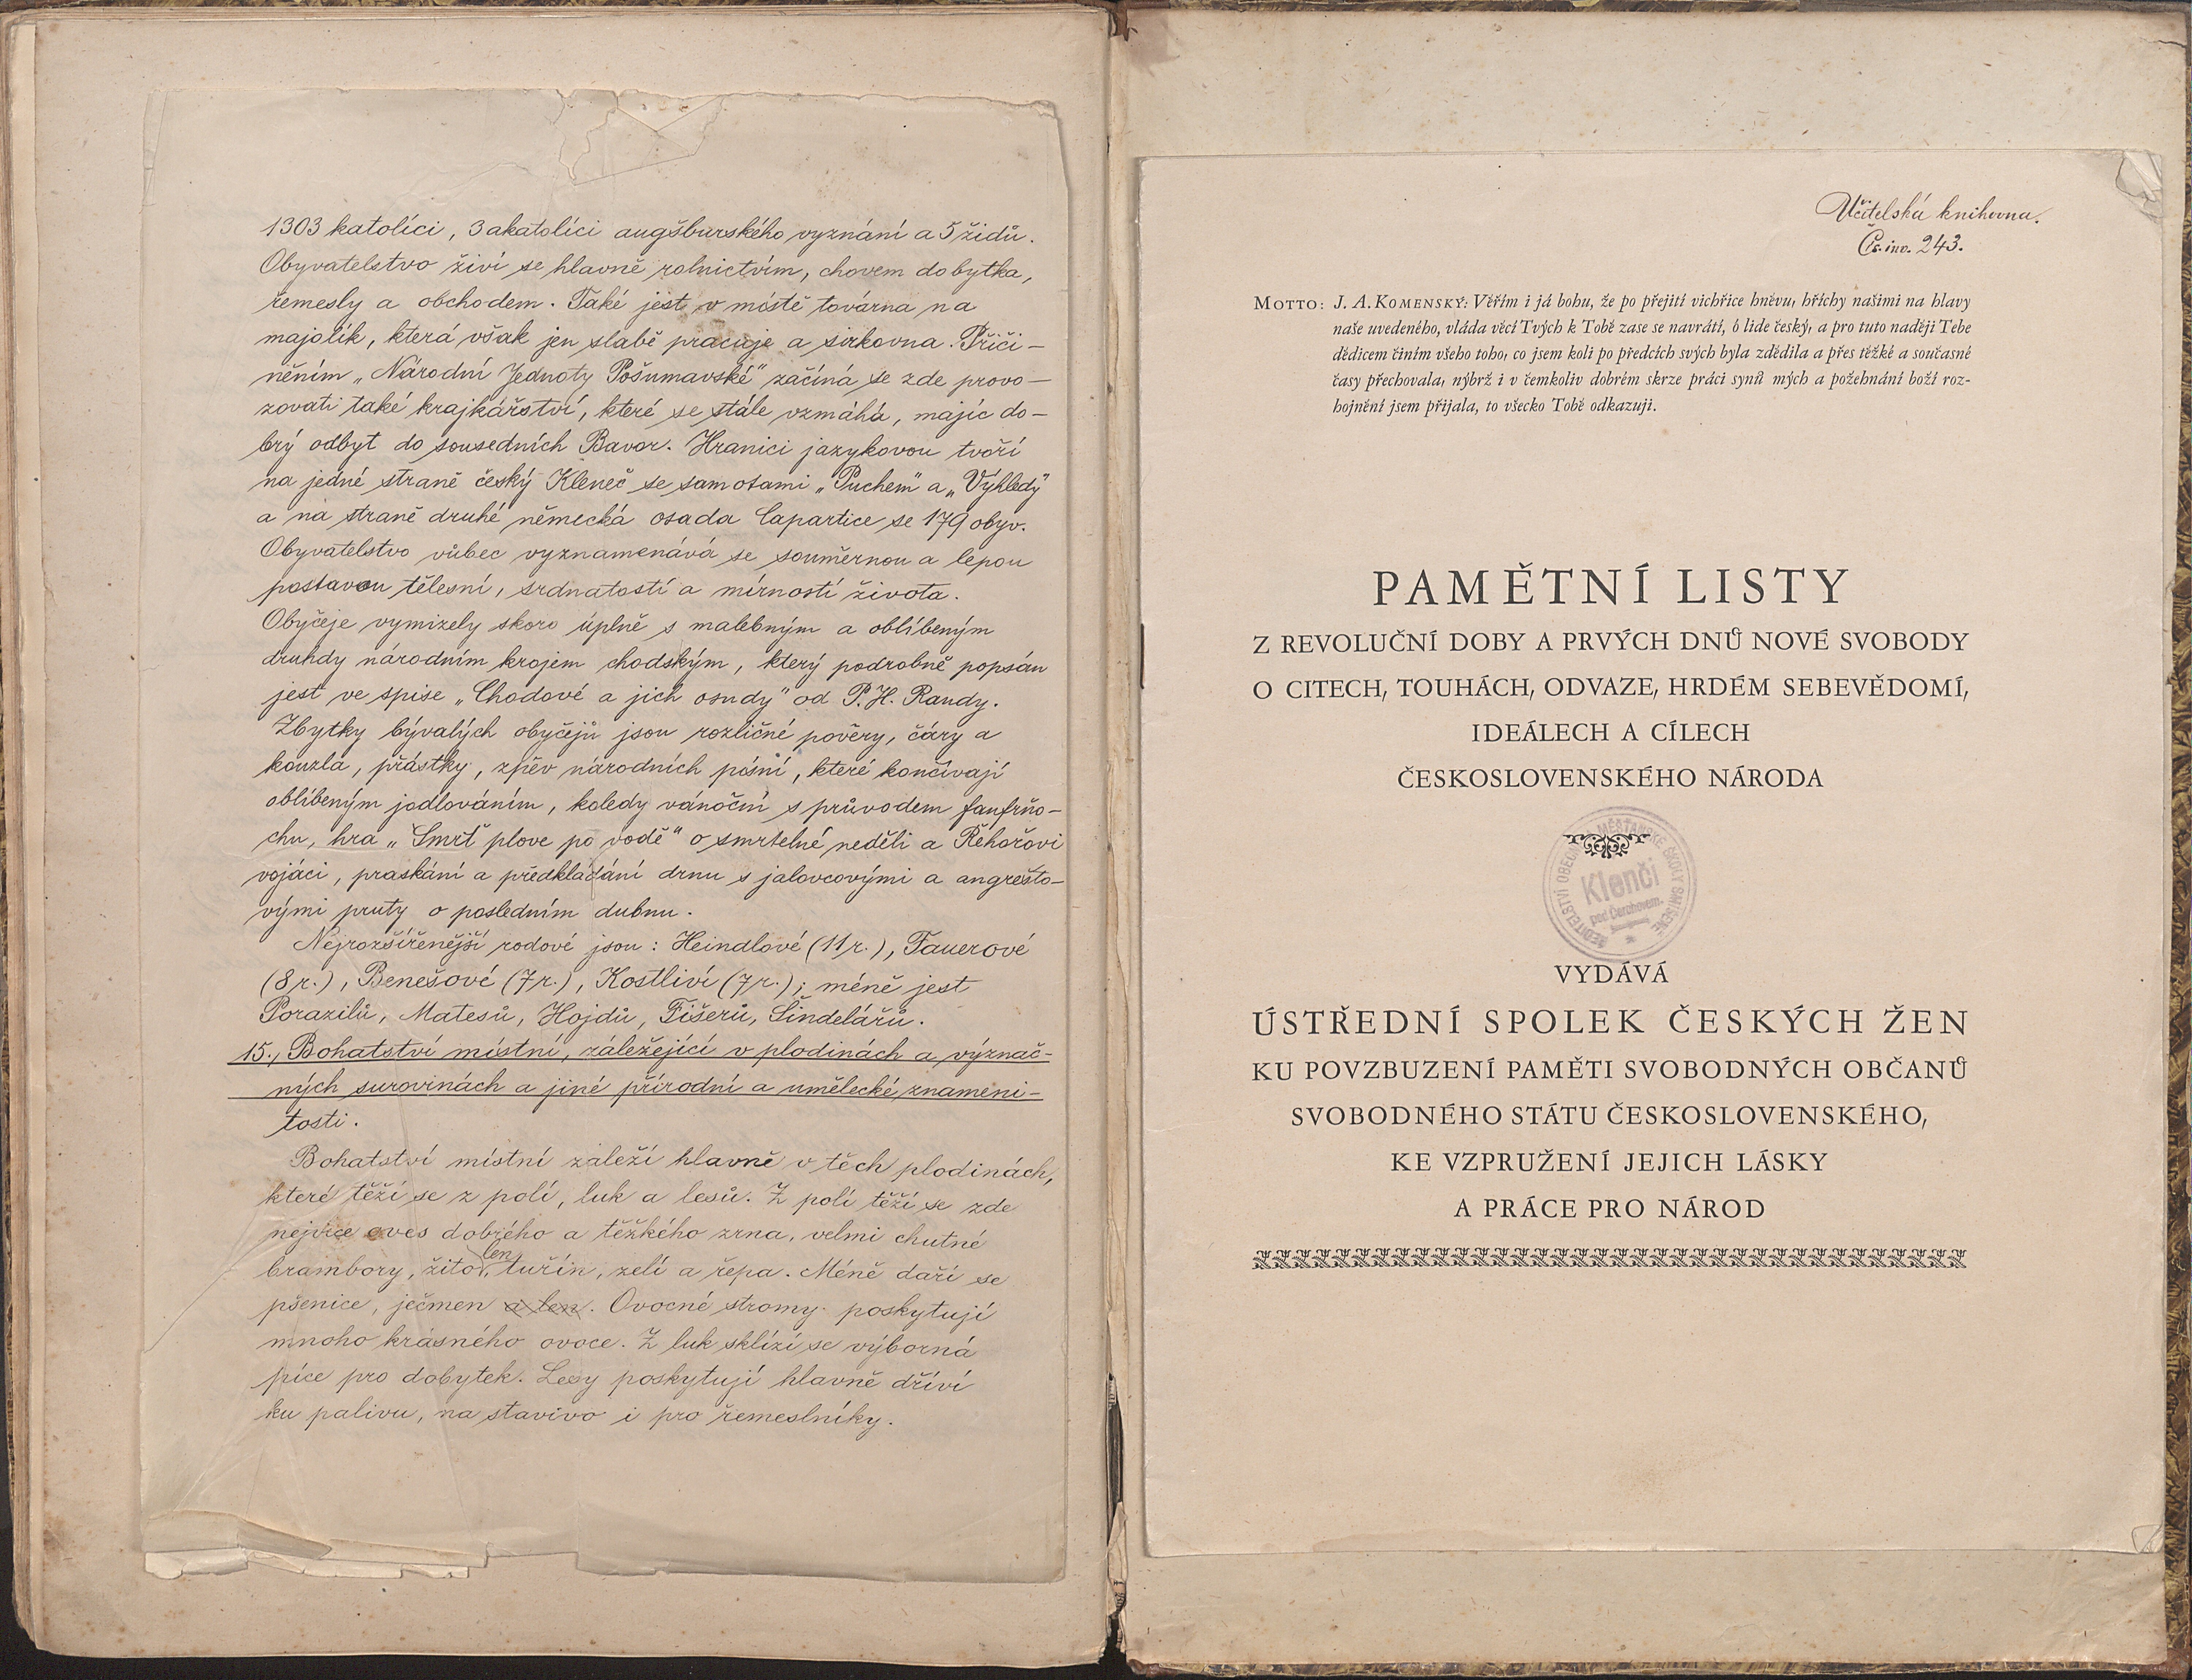 1303 katolíci, 3 akatolíci augšburského vyznání a 5 židů.
Obyvatelstvo živí se hlavně rolnictvím, chovem dobytka,
řemesly a obchodem. Také jest v místě továrna na
majolik, která však jen slabě pracuje a sirkovna. Přiči-
něním „Národní Jednoty Pošumavské" začíná se zde provo-
zovati také krajkářství, které se stále vzmáhá, majíc do-
brý odbyt do sousedních Bavor. Hranici jazykovou tvoří
na jedné straně český Kleneč se samotami „Puchem" a „Výhledy"
a na straně druhé německá osada Capartice se 179 obyv.
Obyvatelstvo vůbec vyznamenává se souměrnou a lepou
postavou tělesní, srdnatostí a mírností života.
Obyčeje vymizely skoro úplně s malebným a oblíbeným
druhdy národním krojem chodským, který podrobně popsán
jest ve spise „Chodové a jich osudy" od P. H. Randy.
Zbytky bývalých obyčejů jsou rozličné pověry, čáry a
kouzla, přástky, zpěv národních písní, které končívají
oblíbeným jodlováním, koledy vánoční s průvodem fanfrňo-
chu, hra „Smrť plove po vodě" o smrtelné neděli a Řehořovi
vojáci, praskání a předkládání drnu s jalovcovými a angrešto-
vými pruty o posledním dubnu.
Nejrozšířenější rodové jsou: Heindlové (11 r.), Fauerové
(8 r.), Benešové (7 r.), Kostliví (7 r.); méně jest
Porazilů, Matesů, Hojdů, Fišerů, Šindelářů.
15., Bohatství místní, záležející v plodinách a význač-
ných surovinách a jiné přírodní a umělecké znameni-
tosti.
Bohatství místní záleží hlavně v těch plodinách,
které těží se z polí, luk a lesů. Z polí těží se zde
nejvíce oves dobrého a těžkého zrna, velmi chutné
len,
brambory, žito, tuřín, zelí a řepa. Méně daří se
pšenice, ječmen a len. Ovocné stromy poskytují
mnoho krásného ovoce. Z luk sklízí se výborná
píce pro dobytek. Lesy poskytují hlavně dříví
ku palivu, na stavivo i pro řemeslníky.
Učitelská knihovna.
Čís. inv. 243.
MOTTO: J. A. KOMENSKÝ: Věřím i já bohu, že po přejití vichřice hněvu, hříchy našimi na hlavy
naše uvedeného, vláda věcí Tvých k Tobě zase se navrátí, ó lide český, a pro tuto naději Tebe
dědicem činím všeho toho, co jsem koli po předcích svých byla zdědila a přes těžké a současné
časy přechovala, nýbrž i v čemkoliv dobrém skrze práci synů mých a požehnání boží roz-
hojnění jsem přijala, to všecko Tobě odkazuji.
PAMĚTNÍ LISTY
Z REVOLUČNÍ DOBY A PRVÝCH DNŮ NOVÉ SVOBODY
O CITECH, TOUHÁCH, ODVAZE, HRDÉM SEBEVĚDOMÍ,
IDEÁLECH A CÍLECH
ČESKOSLOVENSKÉHO NÁRODA
ŘEDITELSTVÍ OBECNÉ MĚŠŤANSKÉ ŠKOLY SMÍŠENÉ
Klenčí
pod Čerchovem.
VYDÁVÁ
ÚSTŘEDNÍ SPOLEK ČESKÝCH ŽEN
KU POVZBUZENÍ PAMĚTI SVOBODNÝCH OBČANŮ
SVOBODNÉHO STÁTU ČESKOSLOVENSKÉHO,
KE VZPRUŽENÍ JEJICH LÁSKY
A PRÁCE PRO NÁROD